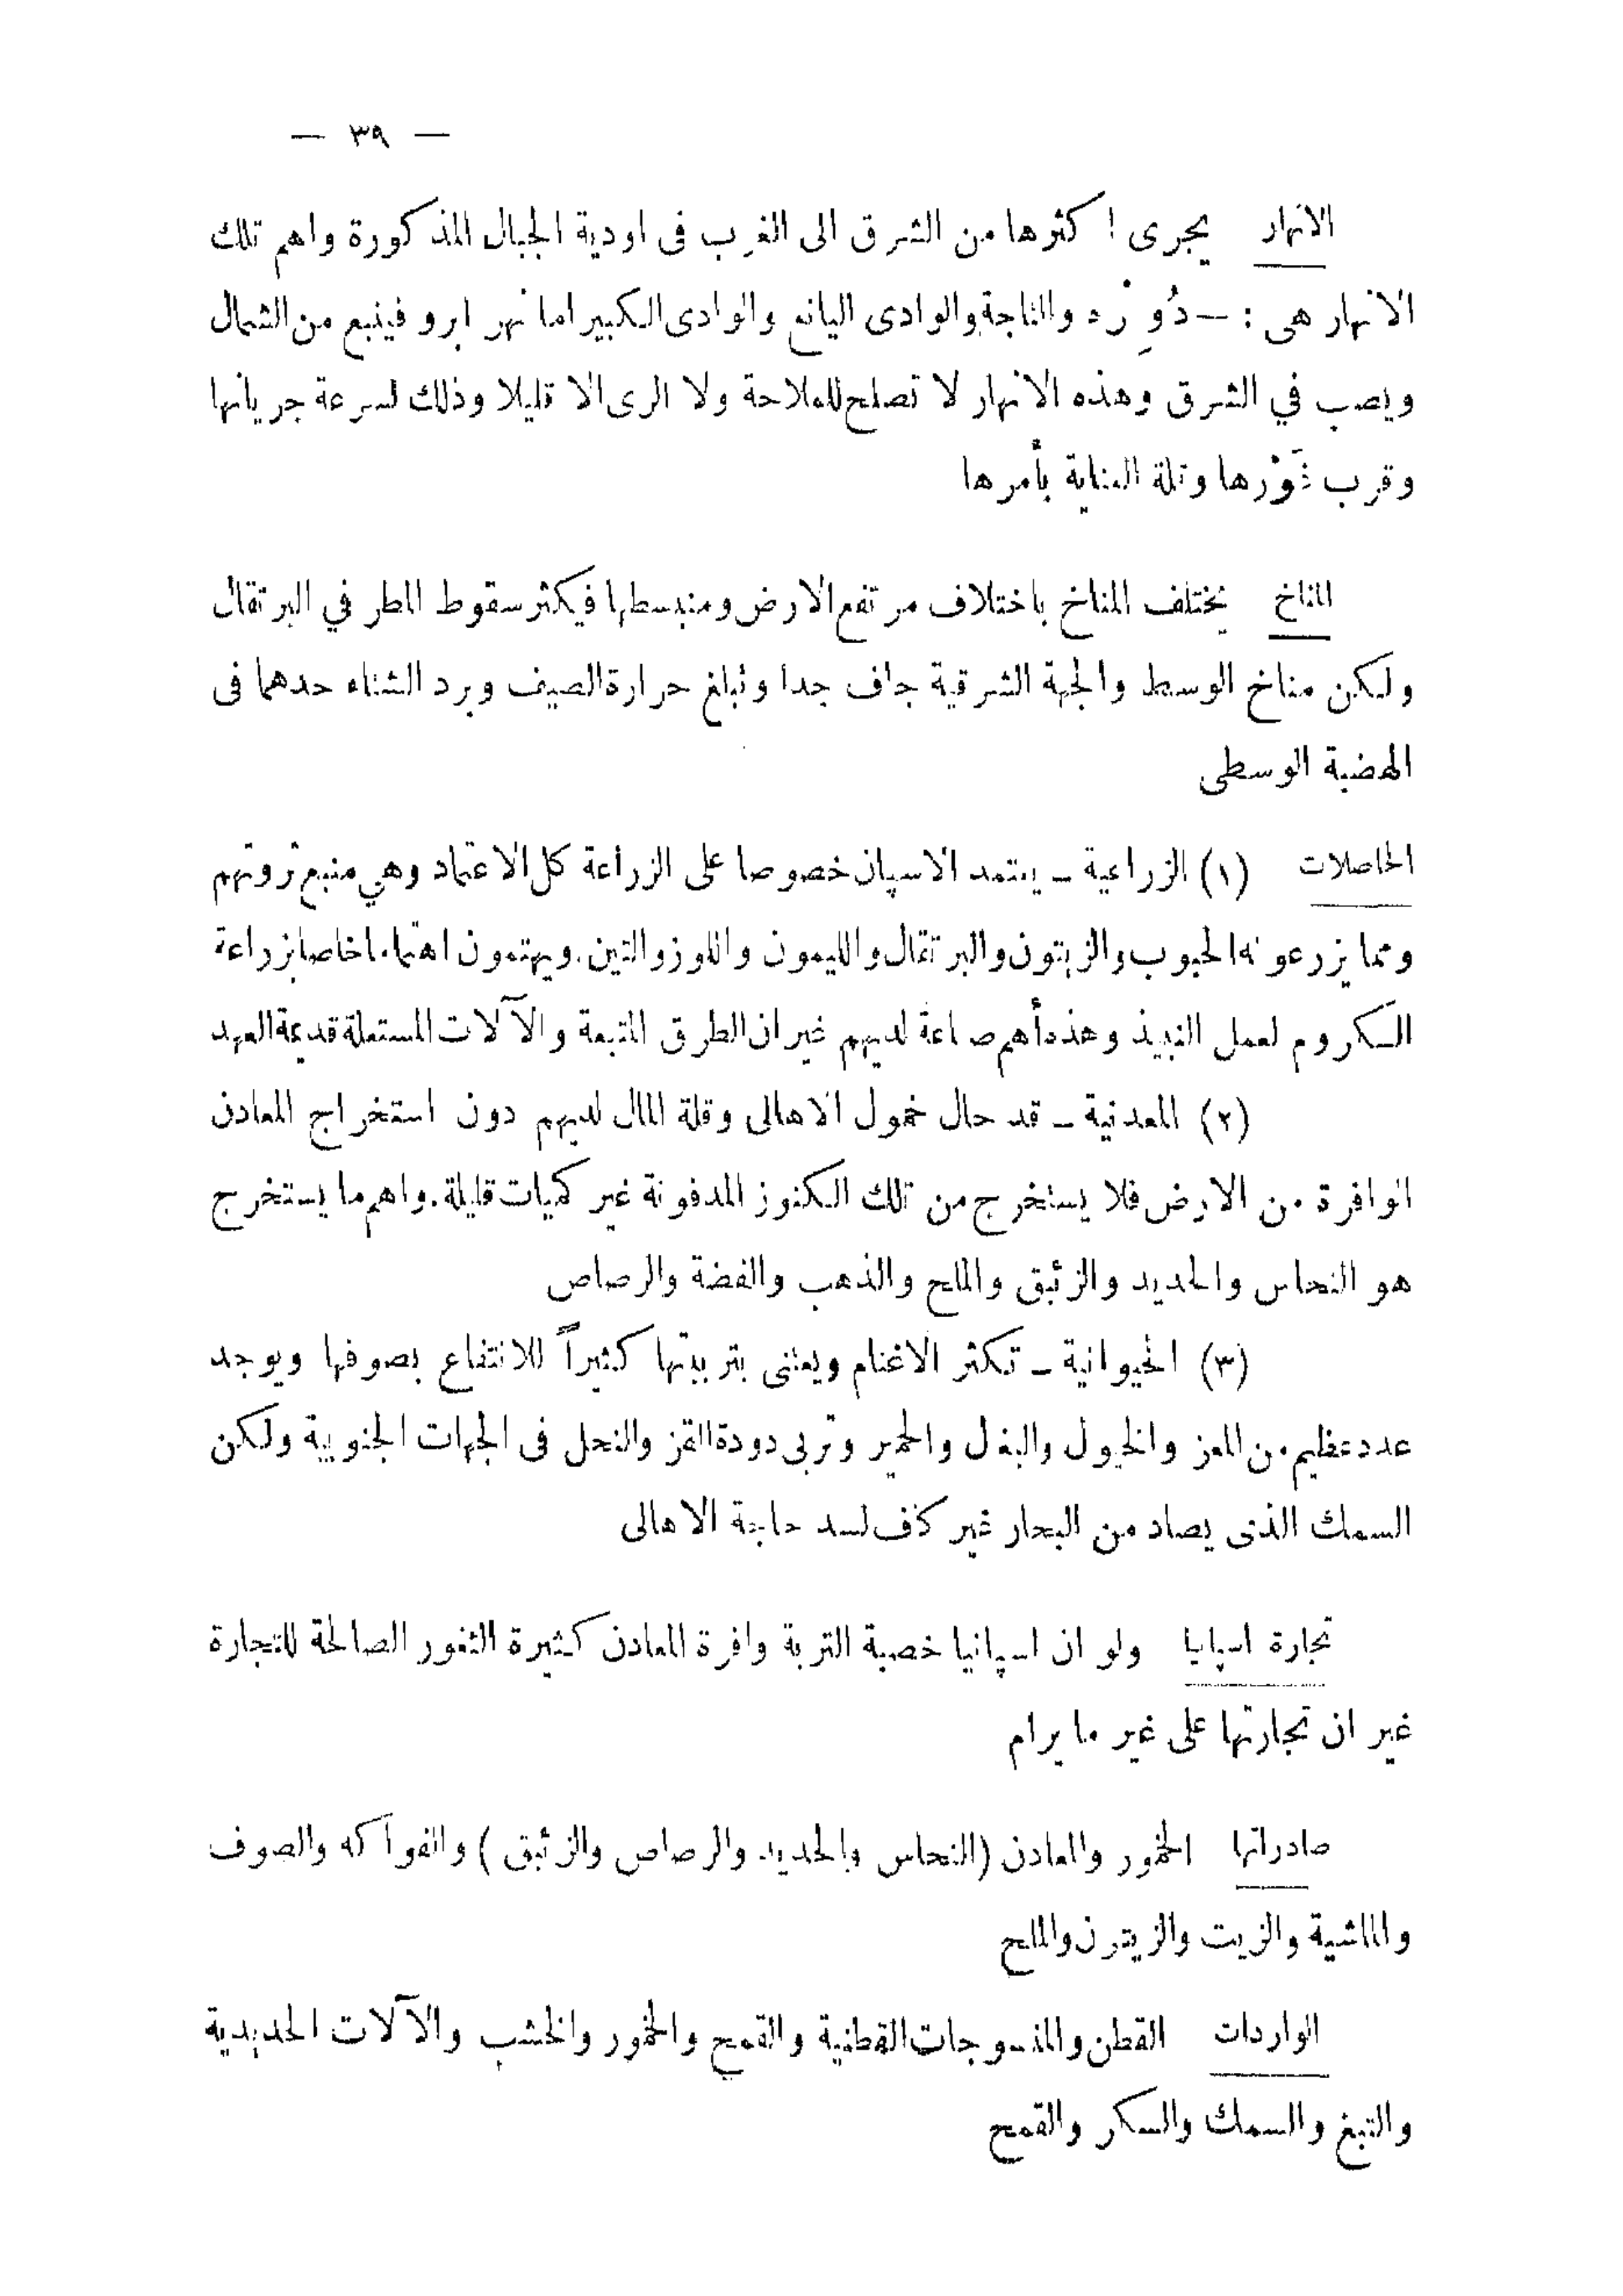 — ٣٩ —
الانهار يجرى اكثرها من الشرق الى الغرب فى اودية الجبال المذكورة واهم تلك
الانهار هى : — دُوِرْه والتاجة والوادى اليانع والوادى الكبير اما نهر ابرو فينبع من الشمال
ويصب في الشرق وهذه الانهار لا تصلح للملاحة ولا الرى الا قليلا وذلك لسرعة جريانها
وقرب غَوْرها وقلة العناية بأمرها
المناخ يختلف المناخ باختلاف مرتفع الارض ومنبسطها فيكثر سقوط المطر في البرتقال
ولكن مناخ الوسط والجهة الشرقية جاف جدا وتبلغ حرارة الصيف وبرد الشتاء حدهما فى
الهضبة الوسطى
الحاصلات (١) الزراعية — يعتمد الاسپان خصوصا على الزراعة كل الاعتماد وهي منبع ثروتهم
ومما يزرعونه الحبوب والزيتون والبرتقال والليمون واللوز والتين. ويهتمون اهتماما خاصا بزراعة
الكروم لعمل النبيذ وهذه أهم صناعة لديهم غير ان الطرق المتبعة والآلات المستعملة قديمة العهد
(٢) المعدنية — قد حال خمول الاهالى وقلة المال لديهم دون استخراج المعادن
الوافرة من الارض فلا يستخرج من تلك الكنوز المدفونة غير كميات قليلة. واهم ما يستخرج
هو النحاس والحديد والزئبق والملح والذهب والفضة والرصاص
(٣) الحيوانية — تكثر الاغنام ويعتنى بتربيتها كثيراً للانتفاع بصوفها ويوجد
عدد عظيم من المعز والخيول والبغال والحمير وتربى دودة القز والنحل فى الجهات الجنوبية ولكن
السمك الذى يصاد من البحار غير كاف لسد حاجة الاهالى
تجارة اسپانيا ولو ان اسپانيا خصبة التربة وافرة المعادن كثيرة الثغور الصالحة للتجارة
غير ان تجارتها على غير ما يرام
صادراتها الخمور والمعادن (النحاس والحديد والرصاص والزئبق) والفواكه والصوف
والماشية والزيت والزيتون والملح
الواردات القطن والمنسوجات القطنية والقمح والخمور والخشب والآلات الحديدية
والتبغ والسمك والسكر والقمح